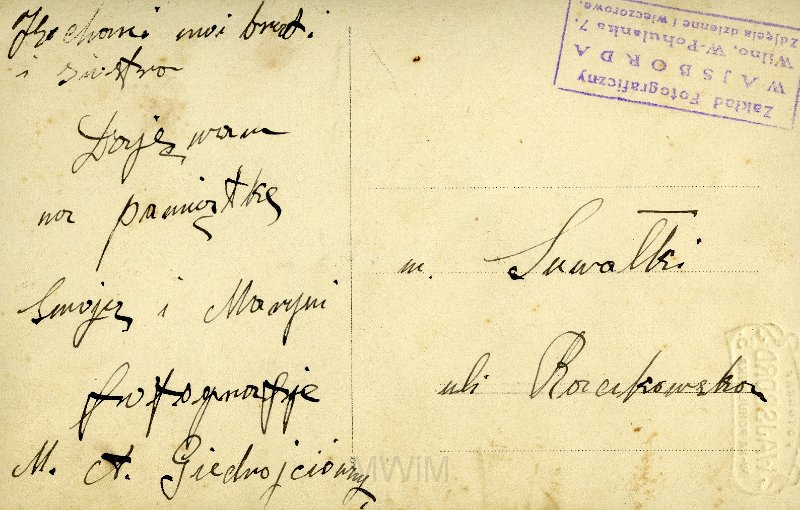 Kochani moi brat i
i siostro
Daję wam
na pamiątkę
Swoję i Maryni
fotografje
M. A. Giedrojciowy
Zakład Fotograficzny
WAJSBORDA
Wilno, W-Pohulanka 7.
Zdjęcia dzienne i wieczorowe.
m. Suwałki
uli Raczkowska
MWiM